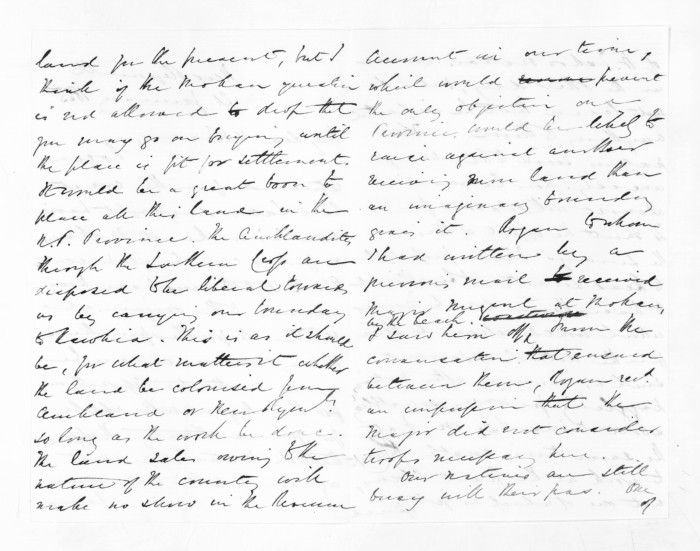 land for the present, but I
think if the Mokau question
is not allowed to drop that
you may go on buying until
the place is fit for settlement.
It would be a great boon to
place all this land in the
N.P. Province. The Aucklandites
through the Southern Cross are
disposed to be liberal towards
us by carrying our boundary
to Kawhia. This is as it should
be, for what matters it whether
the land be colonised from
Auckland or New Plymth
so long as the work be done.
The land sales owing to the
nature of the country will
make no show in the Revenue
account in our time,
which would prevent
the only objection one
Province would be likely to
raise against another
receiving more land than
an imaginary boundary
gives it. Rogan to whom
I had written by a
previous mail received
Major Nugent at Mokau,
by the beach.
& saw him off. From the
conversation that ensued
between them, Rogan recd.
an impression that the
Major did not consider
troops necessary here.
Our natives are still
busy with their pas. One
of